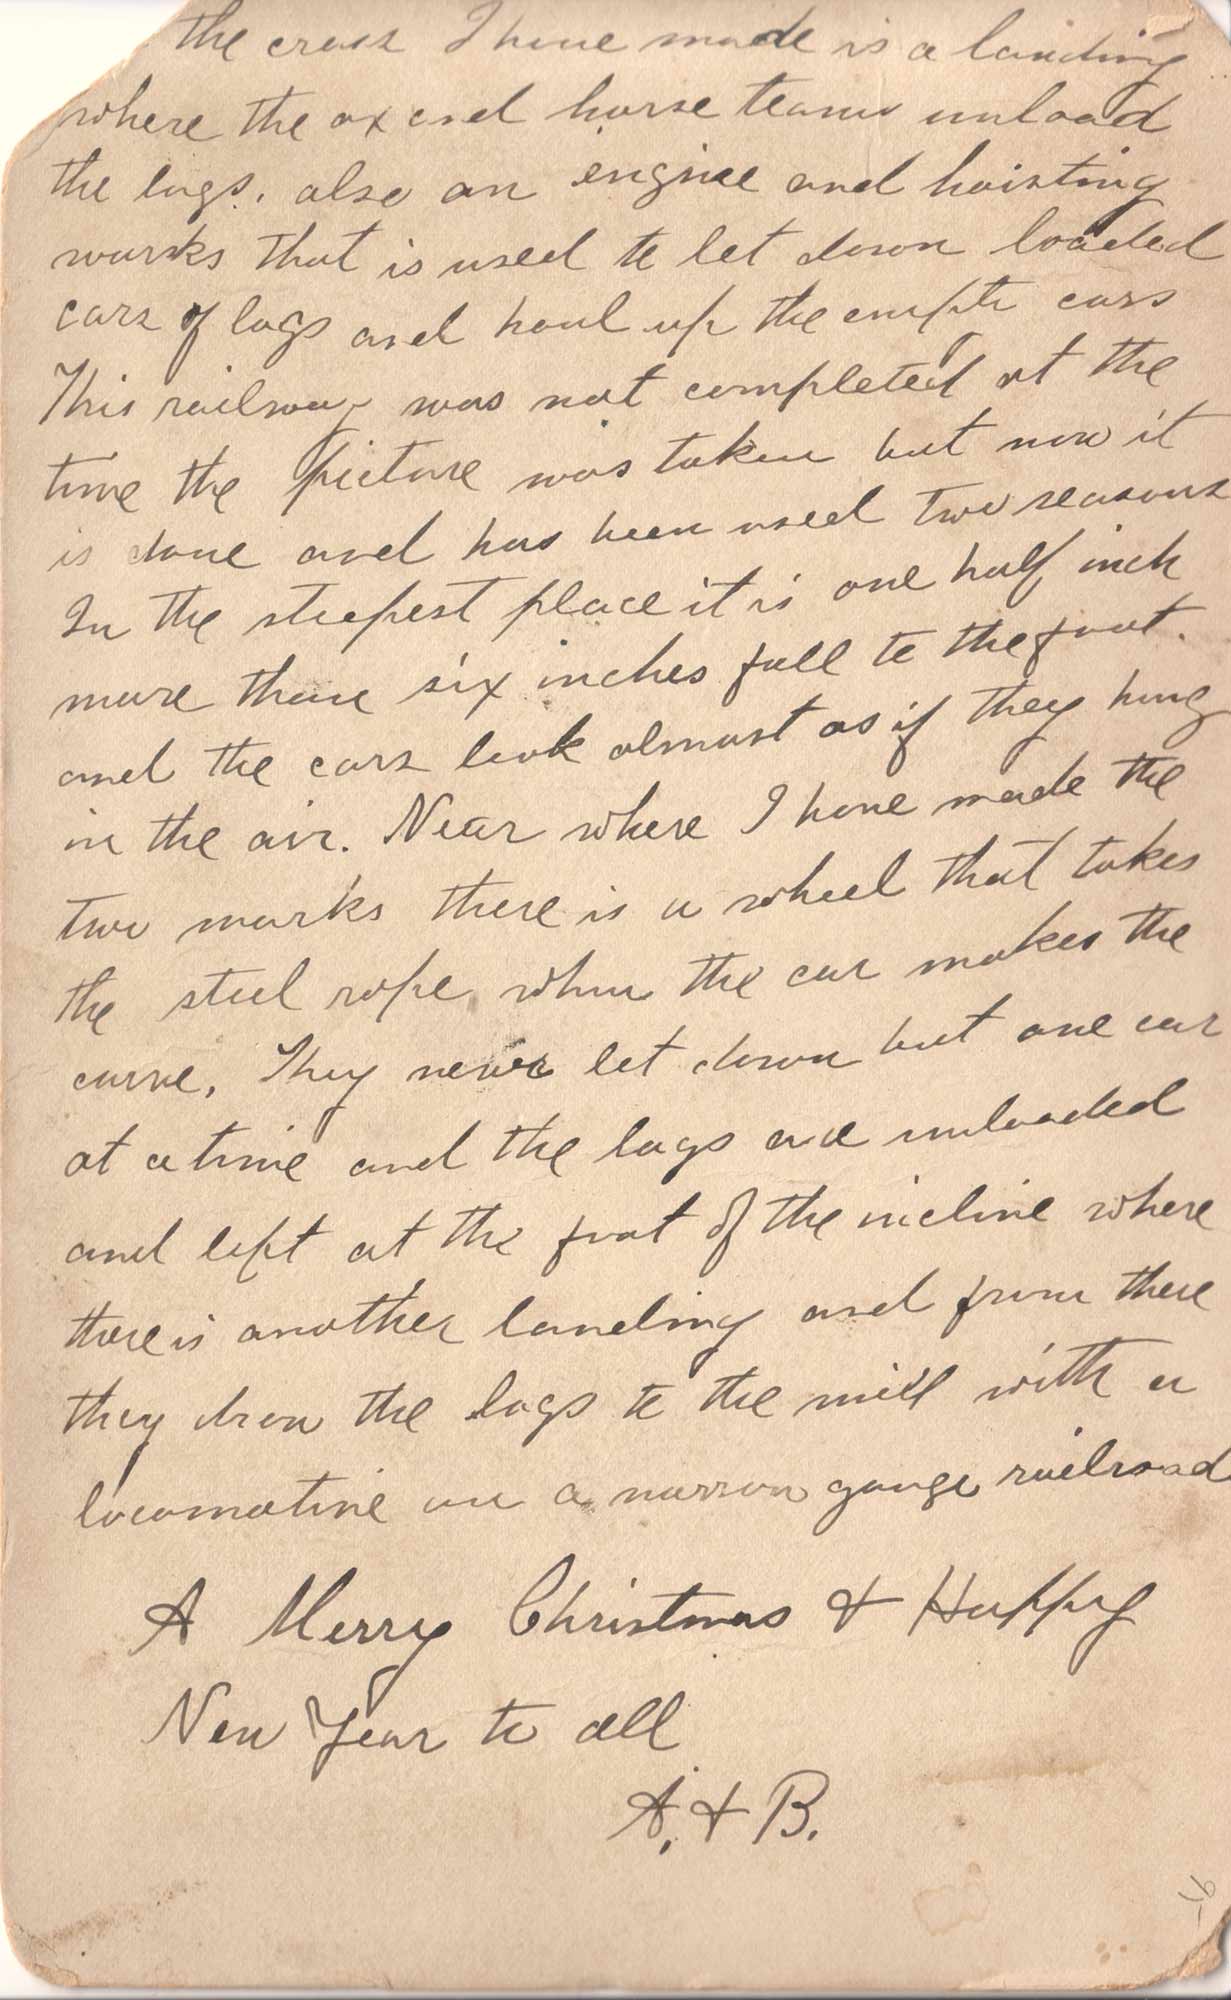 the cross I have made is a landing
where the ox and horse teams unload
the logs. also an engine and hoisting
works that is used to let down loaded
cars of logs and haul up the empty cars
This railway was not completed at the
time the picture was taken but now it
is done and has been used two seasons
In the steepest place it is one half inch
more than six inches fall to the foot.
and the cars look almost as if they hung
in the air. Near where I have made the
two marks there is a wheel that takes
the steel rope when the car makes the
curve. They never let down but one car
at a time and the logs are unloaded
and left at the foot of the incline where
there is another landing and from there
they draw the logs to the mill with a
locomotive on a narrow gauge railroad
A Merry Christmas & Happy
New Year to all
A. & B.